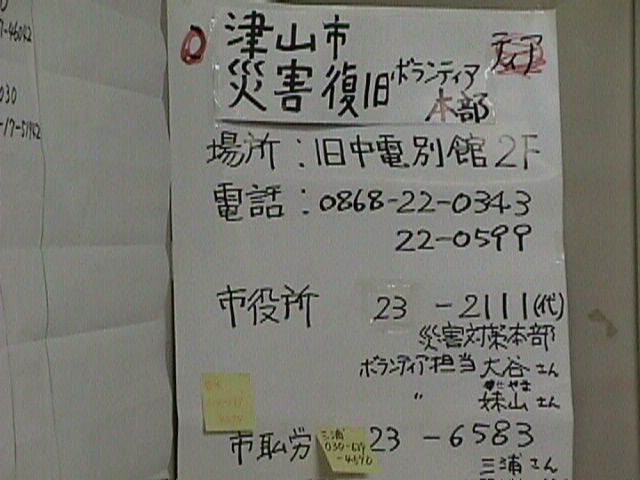 7-46042
030
-17-51942
津山市
ティア
災害復旧ボランティア
本部
場所:旧中電別館2F
電話:0868-22-0343
22-0599
市役所 23-2111(代)
災害対策本部
ボランティア担当 大谷さん
〃 妹山さん
市職労 23-6583
三浦
030-617
-4570
三浦さん